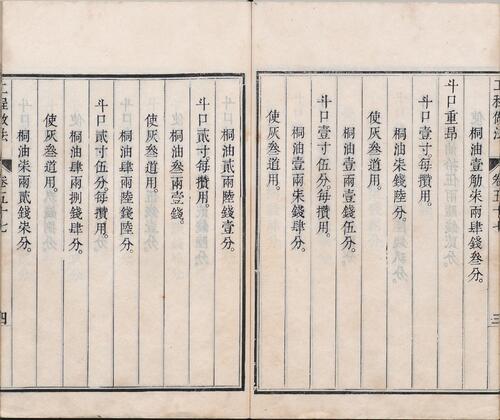 桐油壹觔柒兩肆錢叁分。
斗口重昂
斗口壹寸每攢用。
桐油柒錢陸分。
使灰叁道用。
桐油壹兩壹錢伍分。
斗口壹寸伍分。每攢用。
桐油壹兩柒錢肆分。
使灰叁道用。
桐油貳兩陸錢壹分。
斗口貳寸每攢用。
桐油叁兩壹錢。
使灰叁道用。
桐油肆兩陸錢陸分。
斗口貳寸伍分。每攢用。
桐油肆兩捌錢肆分。
使灰叁道用。
桐油柒兩貳錢柒分。
工程做法
卷五十七
三
工程做法
卷五十七
四